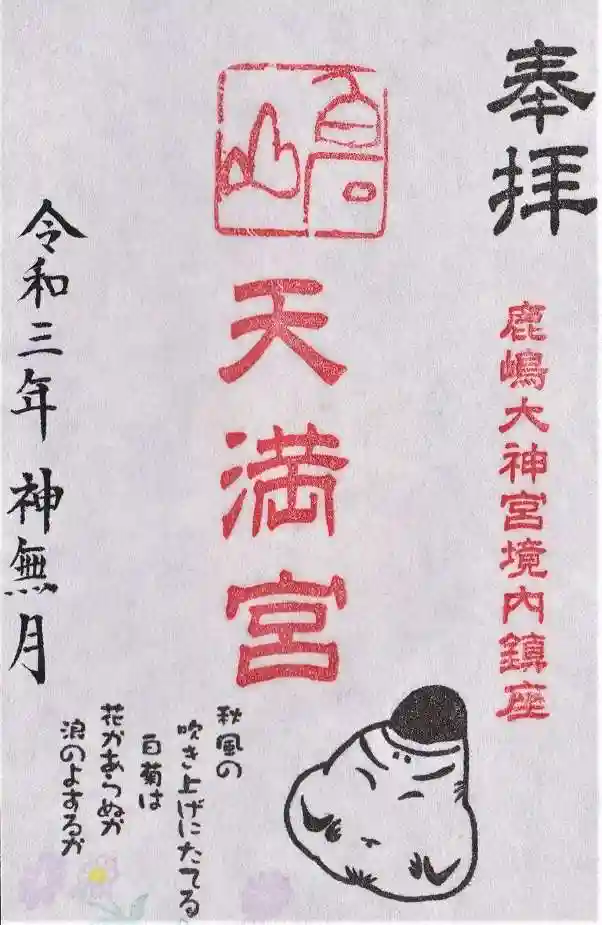 奉拝
鹿嶋大神宮境内鎮座
天満宮
令和三年 神無月
秋風の
吹き上げにたてる
白菊は
花かあらぬか
浪のよするか